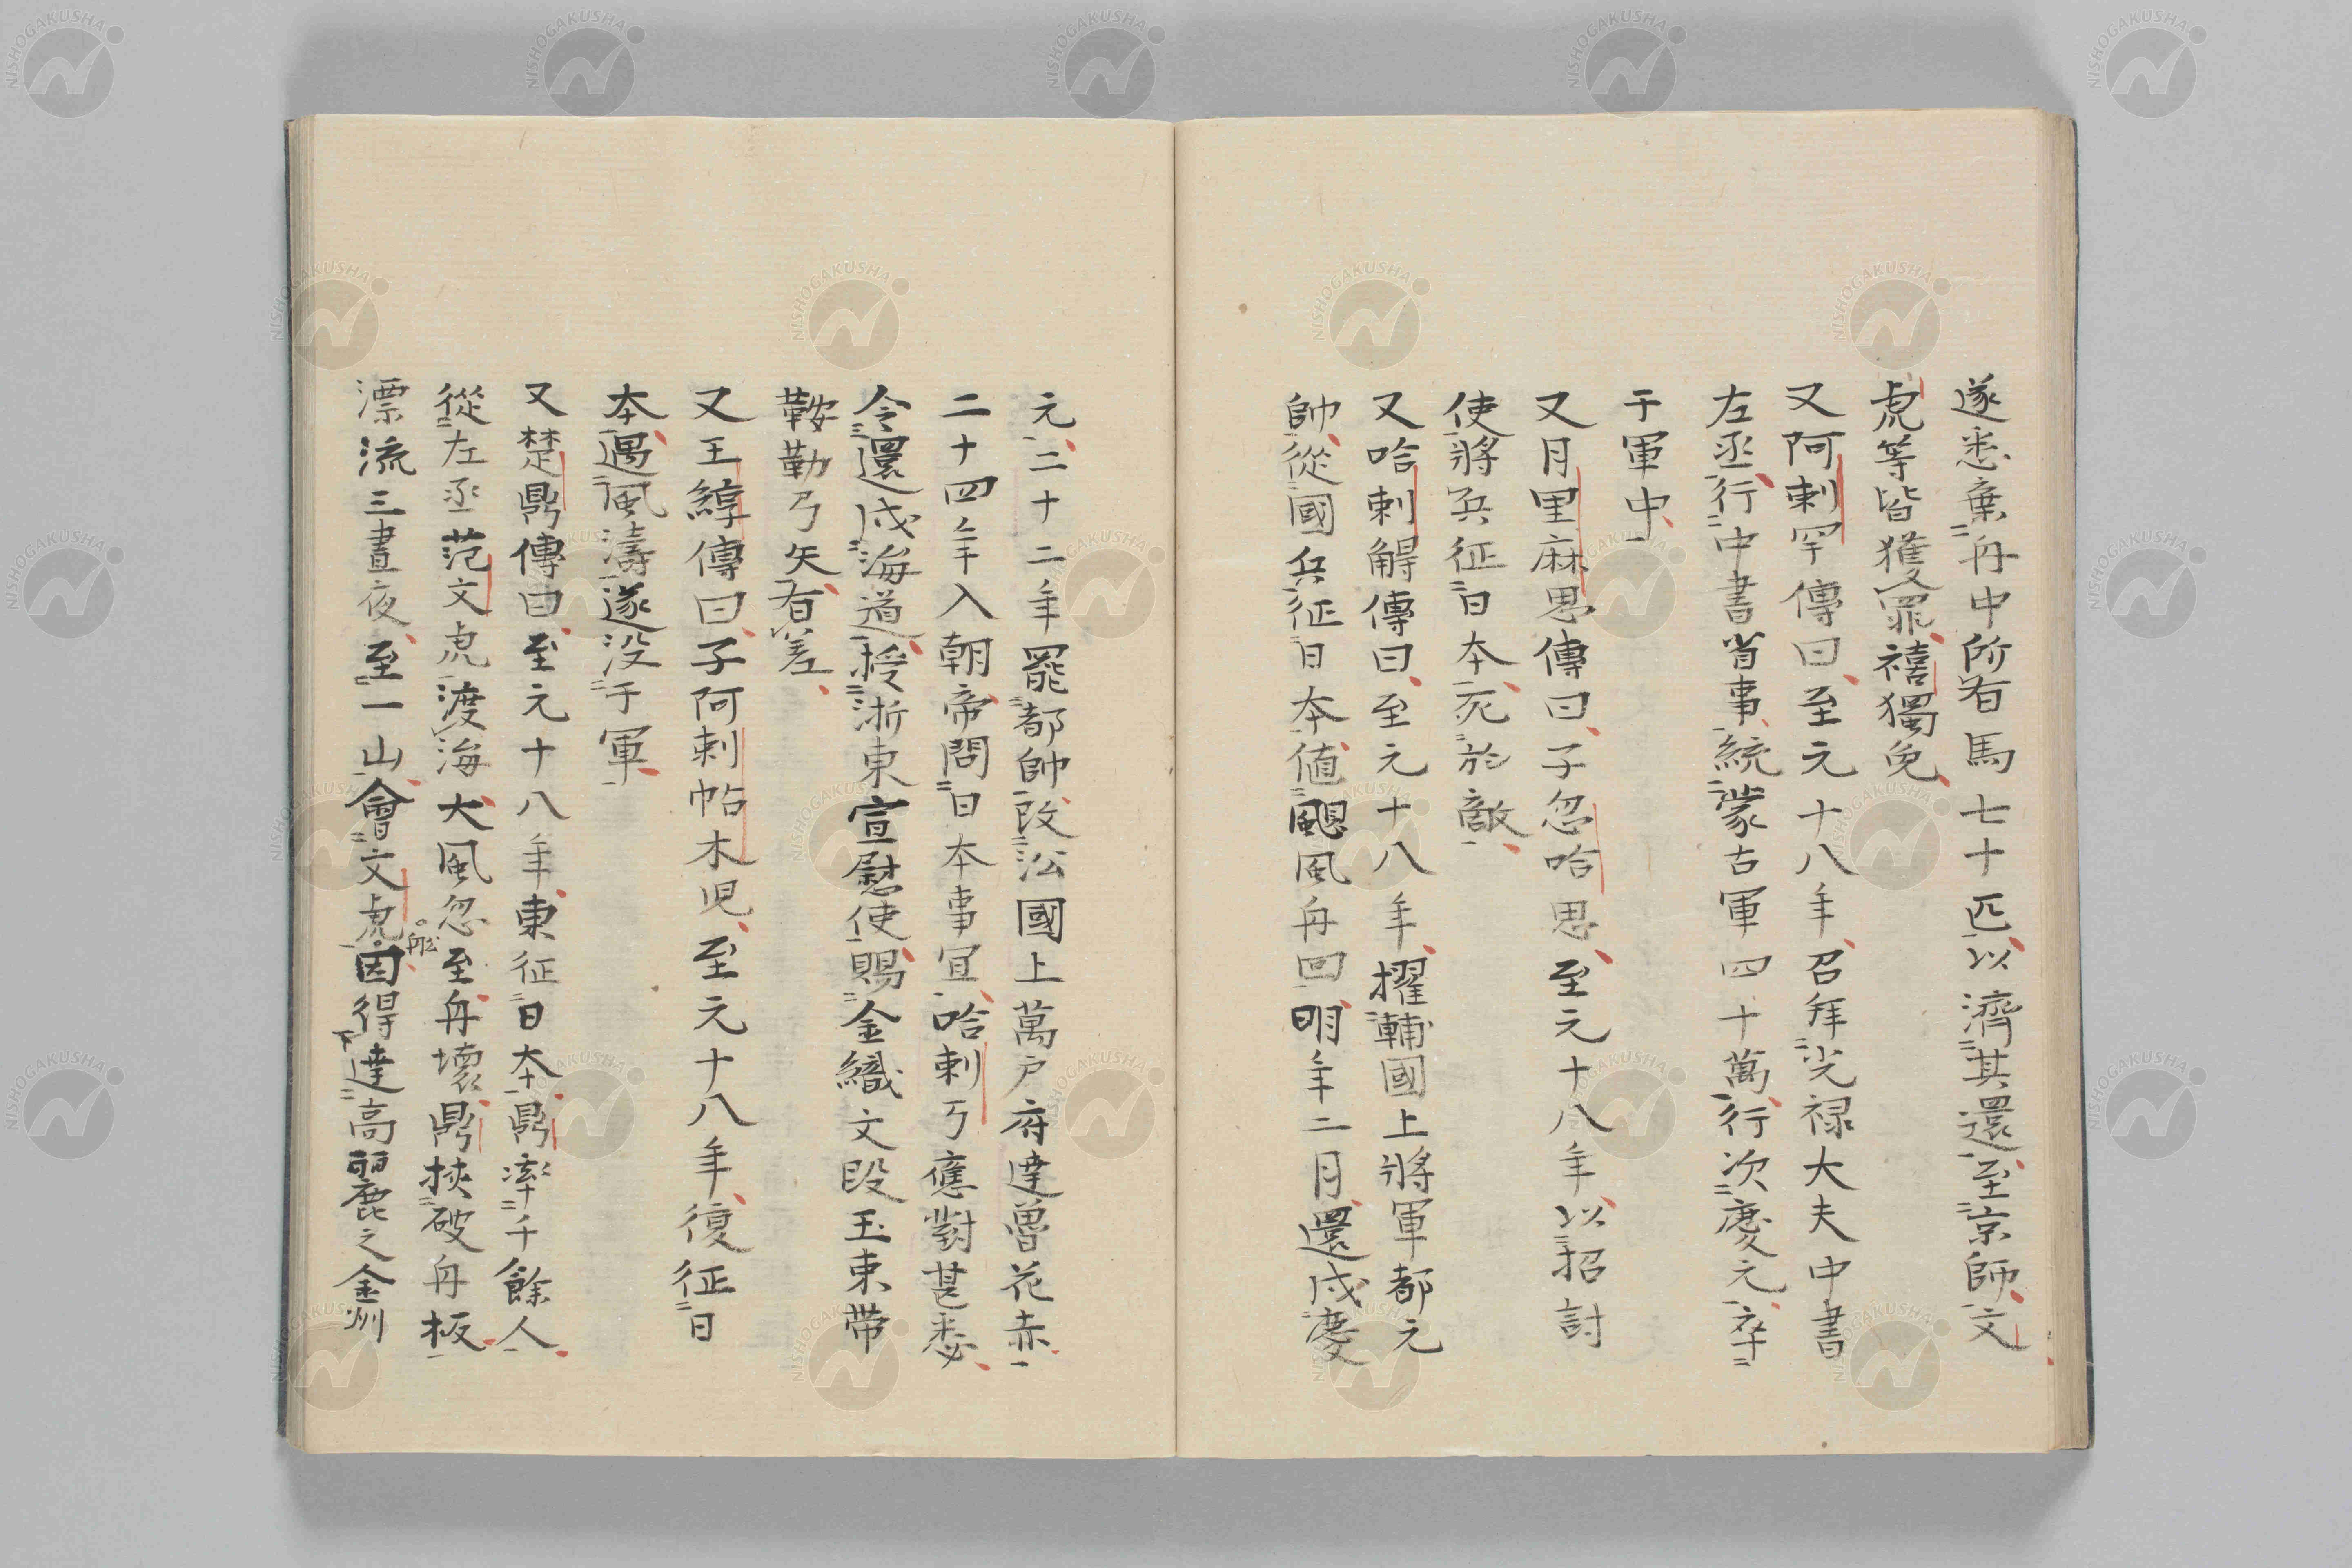 遂悉棄舟中所有馬七十匹以濟其還至京師文
虎等皆獲罪禧獨免
又阿剌罕傳曰至元十八年召拜光禄大夫中書
左丞行中書省事統蒙古軍四十萬行次慶元卒
于軍中
又月里麻思傳曰子忽哈思至元十八年以招討
使將兵征日本死於敵
又哈剌䚟傳曰至元十八年擢輔國上將軍都元
帥從國兵征日本值颶風舟回明年二月還戍慶
元二十二年罷都帥改沿國上萬户府達魯花赤
二十四年入朝帝問日本事宜哈剌䚟應對甚悉
令還戍海道授浙東宣慰使賜金織文段玉束帶
鞍勒弓矢有差
又王綧傳曰子阿剌帖木児至元十八年復征日
本遇風濤遂没于軍
又楚鼎傳曰至元十八年東征日本鼎率千餘人
從左丞范文虎渡海大風忽至舟壞鼎挾破舟板
漂流三晝夜至一山會文虎舩因得達高麗之金州
NISHOGAKUSHA